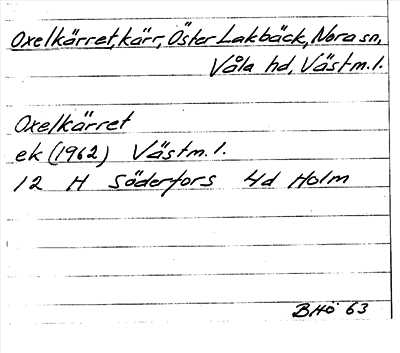 Oxelkärret, kärr, Öster Lakbäck, Nora sn,
Våla hd, Västm. l.
Oxelkärret
ek (1962) Västm. l.
12 H Söderfors 4d Holm
BHö 63